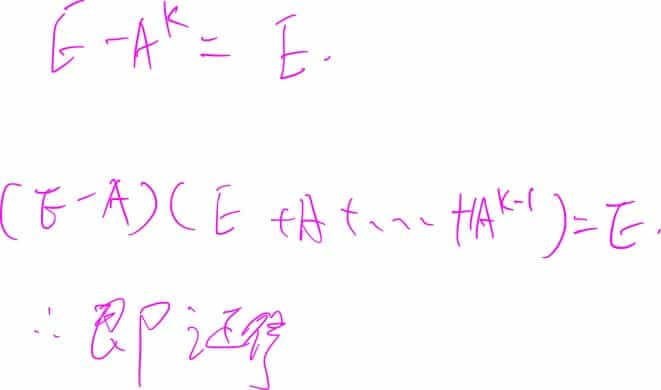 E - A^k = E.
(E - A)(E + A + ... + A^{k-1}) = E.
∴ 即证得